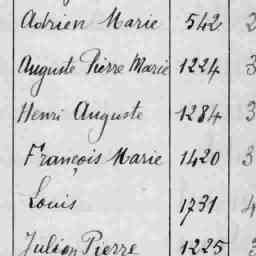 Adrien Marie 542 2
Auguste Pierre Marie 1224 3
Henri Auguste 1284 3
François Marie 1420 3
Louis 1731 4
Julien Pierre 1225 3